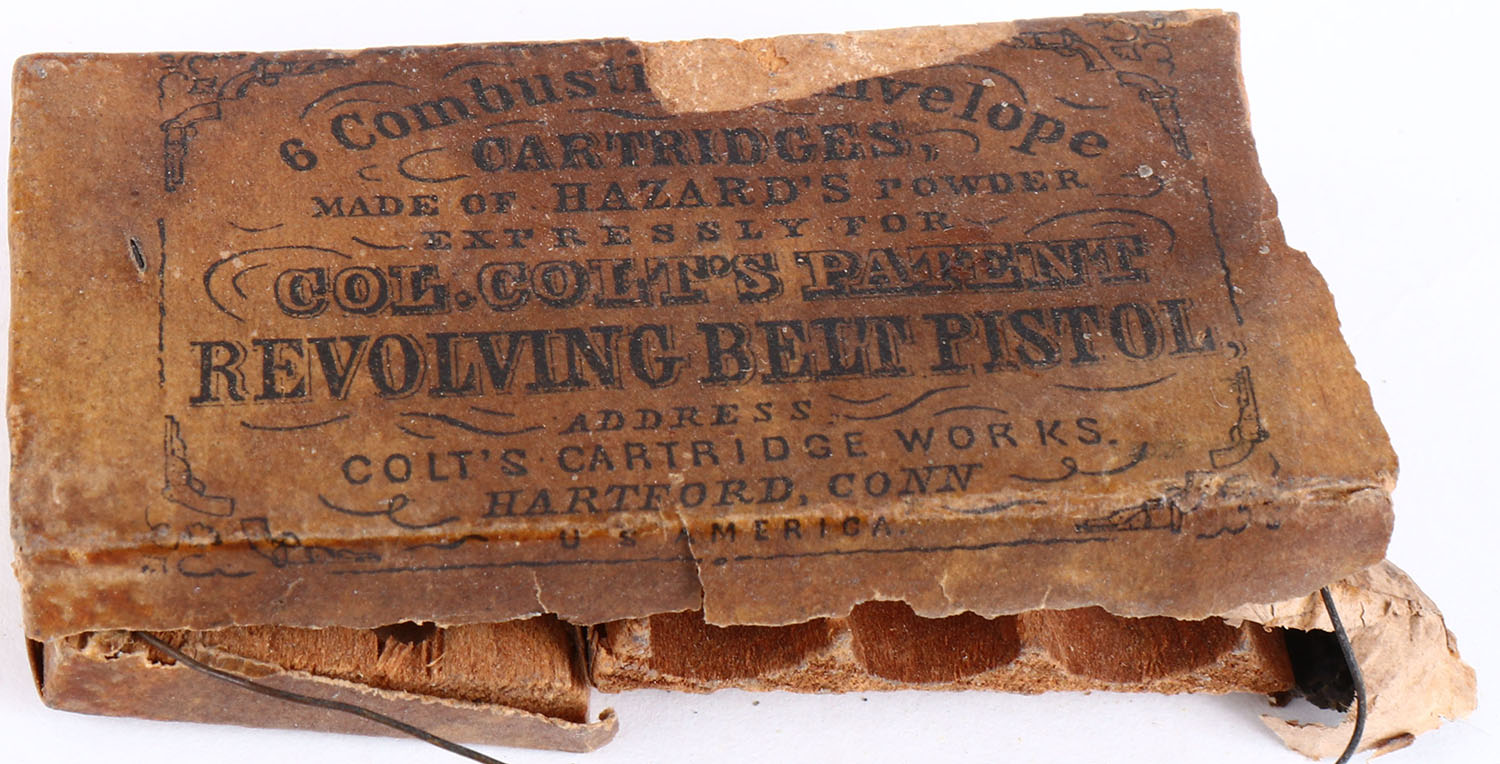 6 Combusti nvelope
CARTRIDGES,
MADE OF HAZARD'S POWDER
EXPRESSLY FOR
COL. COLT'S PATENT
REVOLVING BELT PISTOL,
ADDRESS
COLT'S CARTRIDGE WORKS.
HARTFORD, CONN
U S AMERICA.